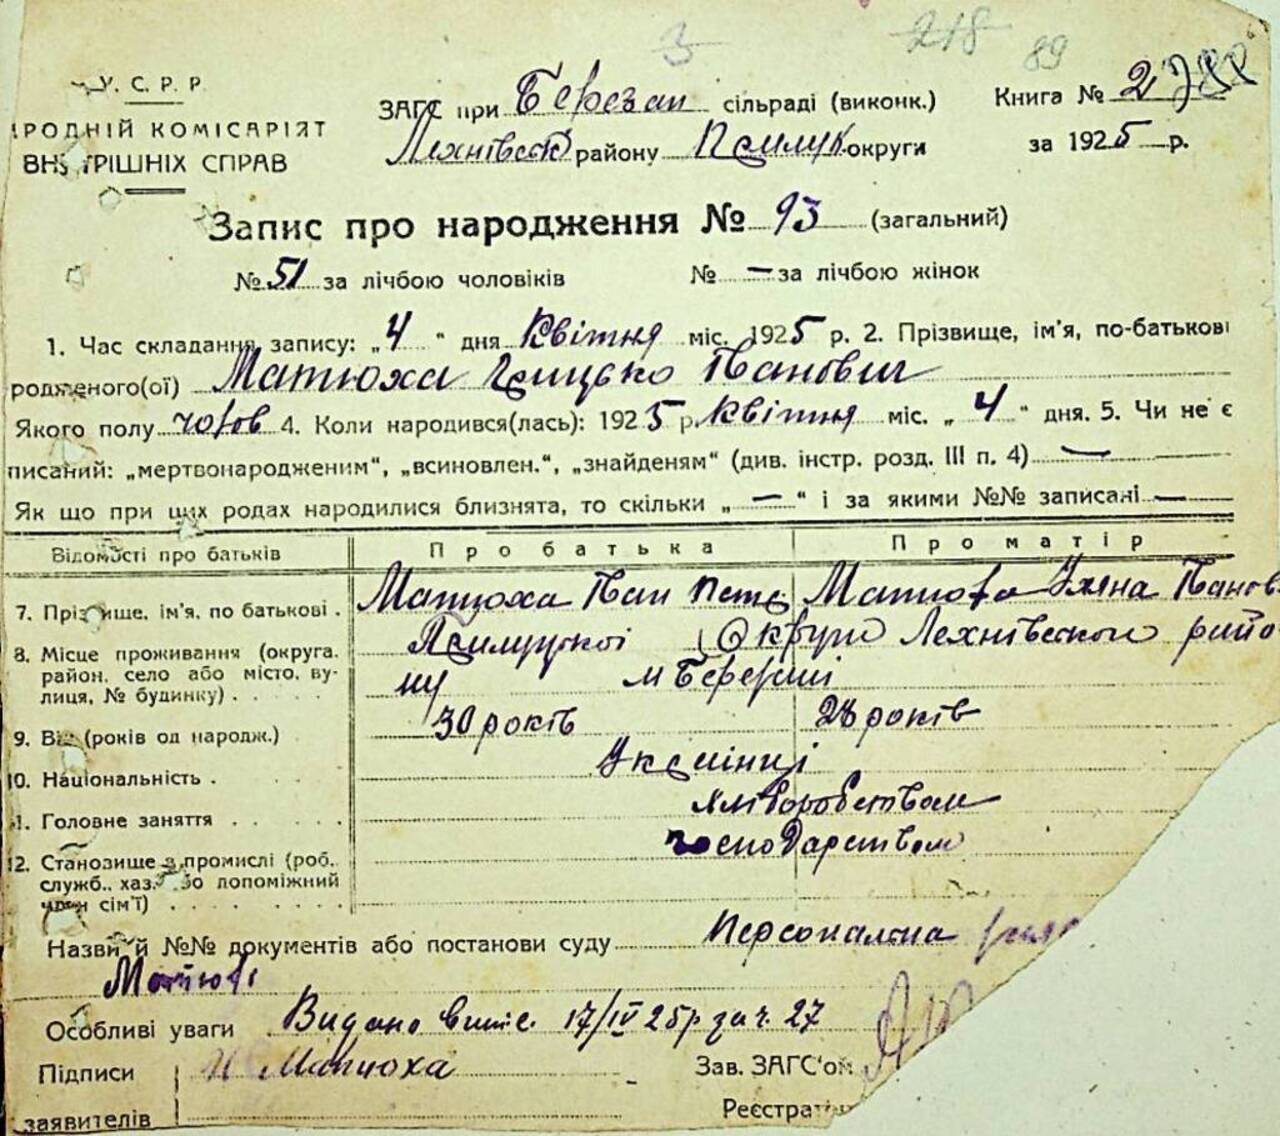 3 218 89
У. С. Р. Р.
ЗАГС при Березан сільраді (виконк.) Книга № 2
РОДНІЙ КОМІСАРІЯТ
Лехнівськ району Прилук округи за 1925 р.
ВНУТРІШНІХ СПРАВ
Запис про народження № 93 (загальний)
№ 51 за лічбою чоловіків № — за лічбою жінок
1. Час складання запису: „4“ дня Квітня міс. 1925 р. 2. Прізвище, ім'я, по-батькові
родженого(ої) Матюха Грицько Іванович
Якого полу чолов 4. Коли народився(лась): 1925 р. Квітня міс. „4“ дня. 5. Чи не є
писаний: „мертвонародженим“, „всиновлен.“, „знайденям“ (див. інстр. розд. III п. 4) —
Як що при цих родах народилися близнята, то скільки „—“ і за якими №№ записані —
Відомості про батьків Про батька Про матір
7. Прізвище, ім'я, по батькові . Матюха Іван Петр Матюха Уляна Іванов
8. Місце проживання (округа, Прилуцької Округи Лехнівского райо
район, село або місто, ву-
лиця, № будинку) . . . . ну м Березані
9. Вік (років од народж.) 30 років 28 років
10. Національність . Українці
11. Головне заняття . . . . . хліборобством
12. Становище в промислі (роб., господарством
служб., хаз. або допоміжний
член сім'ї) . . . . . . . .
Назви й №№ документів або постанови суду Персональна
Матюхі
Особливі уваги Видано випис. 17/IV 25р за ч. 27
Підписи И Матюха Зав. ЗАГС'ом
заявителів Реєстрат